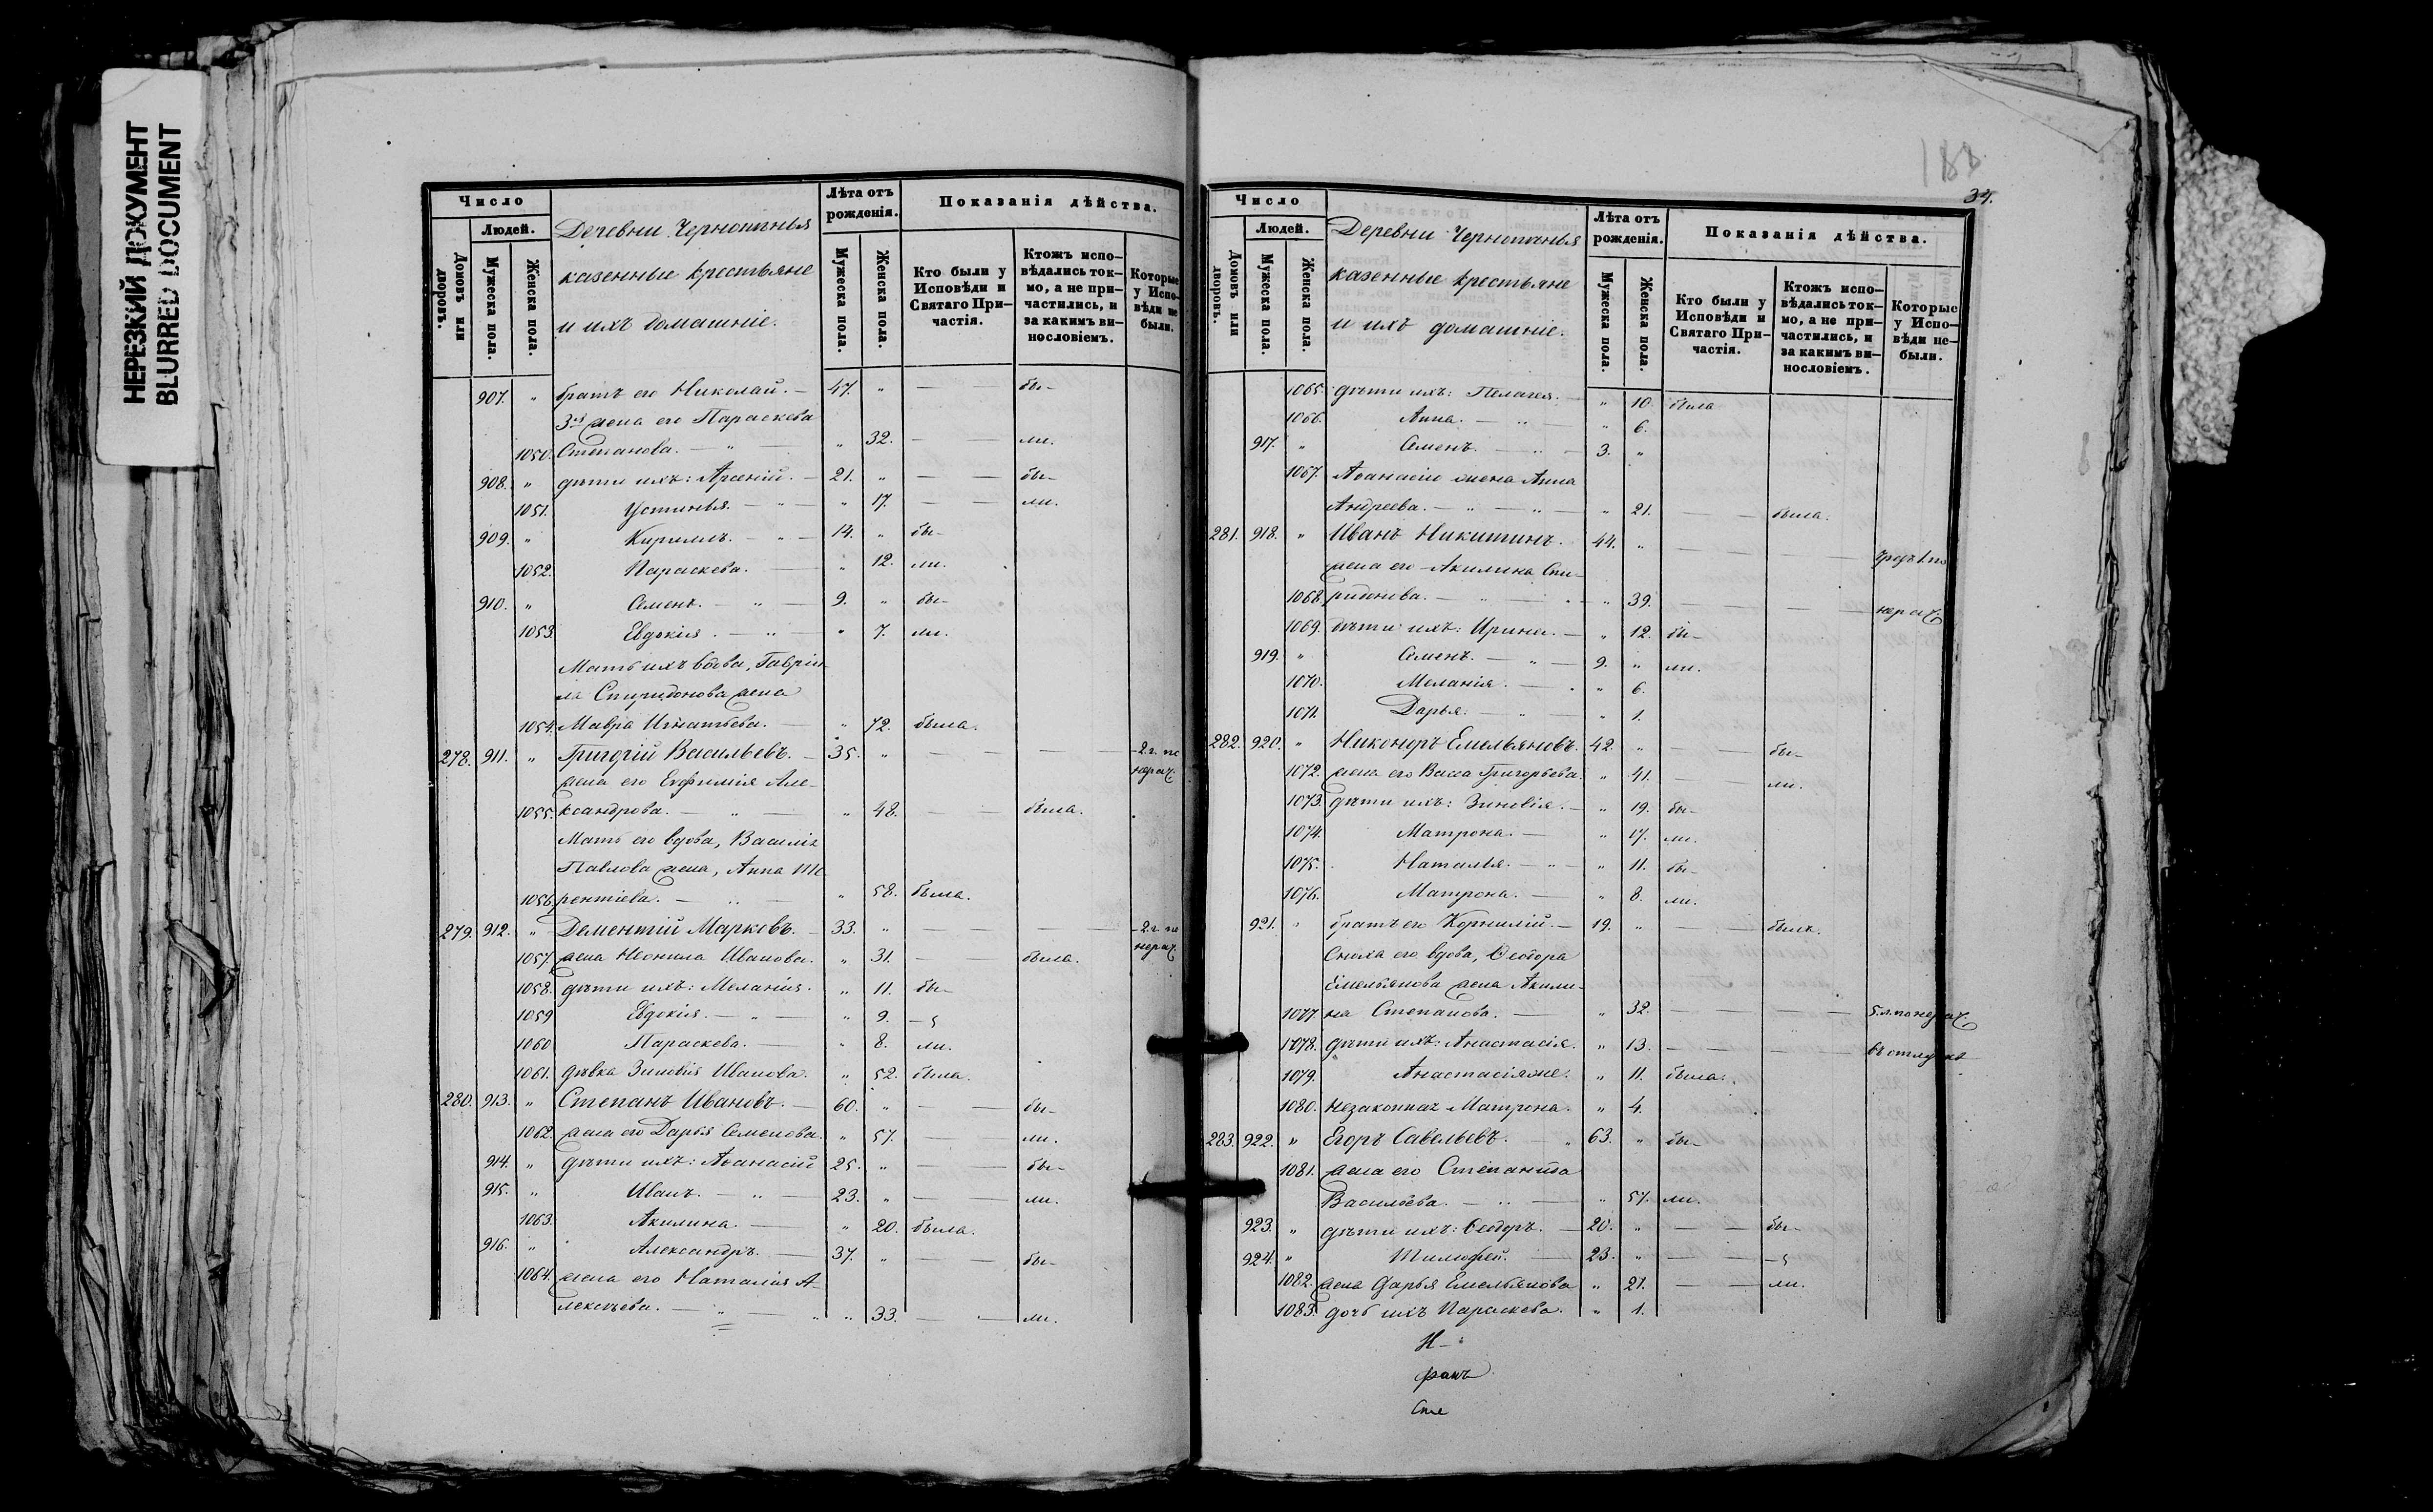 НЕРЕЗКИЙ ДОКУМЕНТ
BLURRED DOCUMENT
Число
Людей.
Домовъ или дворовъ.
Мужеска пола.
Женска пола.
Деревни
казенные крестьяне
и ихъ домашніе.
Лѣта отъ рожденія.
Мужеска пола.
Женска пола.
Показанія дѣйства.
Кто были у Исповѣди и Святаго При-частія.
Ктожъ испо-вѣдались ток-мо, а не при-частились, и за какимъ ви-нословіемъ.
Которые у Испо-вѣди не были.
907. " братъ его Николай. — 47. " — — бы-
3й жена его Параскева
1050. Степанова. — " — " 32. — — ли.
908. " дѣти ихъ: Арсеній. — 21. " — — бы-
1051. Устинья. — " — " 17. — — ли.
909. " Кириллъ. — " — 14. " бы-
1052. Параскева. — " 12. ли.
910. " Семенъ. — " — 9. " бы-
1053. Евдокія. — " — " 7. ли.
Мать ихъ вдова, Гаврiи-
ла Спиридонова жена
1054. Мавра Игнатьева. — " 72. была.
278. 911. " Григорій Васильевъ. — 35. " — — — 2 г. по
нерач.
жена его Евфимія Але-
1055. ксандрова. — " — " 48. — — была.
Мать его вдова, Василія
Павлова жена, Анна Те-
1056. рентіева. — " — " 58. была.
279. 912. " Дементій Марковъ. — 33. " — — — — 2 г. по
нерач.
1057. жена Неонила Иванова. " 31. — была.
1058. дѣти ихъ: Меланія. " 11. бы-
1059 Евдокія. — " — " 9. —
1060 Параскева. — " 8. ли.
1061. дѣвка Зиновія Иванова. " 52. была.
280. 913. " Степанъ Ивановъ. — 60. " — — бы-
1062. жена его Дарья Семенова. " 57. — ли.
914. " дѣти ихъ: Аѳанасій 25. " — — бы-
915. " Иванъ. — " — 23. " — — ли.
1063. Акилина. — " 20. была.
916. " Александръ. — 37. " — — бы-
1064. жена его Наталія А-
лексѣева. — " — " 33. — — ли.
188
34.
Число
Людей.
Домовъ или дворовъ.
Мужеска пола.
Женска пола.
Деревни
казенные крестьяне
и ихъ домашніе.
Лѣта отъ рожденія.
Мужеска пола.
Женска пола.
Показанія дѣйства.
Кто были у Исповѣди и Святаго При-частія.
Ктожъ испо-вѣдались ток-мо, а не при-частились, и за какимъ ви-нословіемъ.
Которые у Испо-вѣди не-были.
1065. дѣти ихъ: Пелагея. — " 10. была
1066. Анна. — " — " 6.
917. " Семенъ. — " — 3. "
1067. Аѳанасія жена Анна
Андреева. — " — " — " 21. — — была.
281. 918. " Иванъ Никитинъ. 44. " — — — —
жена его Акилина Спи-
1068. ридонова. — " — " 39. — — — — нерач.
1069. дѣти ихъ: Ирина. — " 12. бы-
919. " Семенъ. — " — 9. " ли.
1070. Меланія. — " 6.
1071. Дарья. — " — " 1.
282. 920. " Никоноръ Емельяновъ. 42. " — бы-
1072. жена его Васса Григорьева. " 41. — ли.
1073. дѣти ихъ: Зиновія. — " 19. бы-
1074. Матрона. — " 17. ли.
1075. Наталья. — " — " 11. бы-
1076. Матрона. — " 8. ли.
921. " братъ его Корнилій. — 19. " — — былъ.
Сноха его вдова, Ѳеодора
Емельянова жена Акили-
1077. на Степанова. — " 32. — — — 5 л. по нерач.
1078. дѣти ихъ: Анастасія. " 13. — — — въ отлучкѣ
1079. Анастасія же. " 11. была.
1080. незаконная Матрона. " 4.
283. 922. " Егоръ Савельевъ. — " 63. " бы-
1081. жена его Степанида
Васильева. — " — " 57. ли.
923. " дѣти ихъ: Ѳеодоръ. — 20. " — — бы-
924. " Тимоѳей. — 23. " — — —
1082. жена Дарья Емельянова " 21. — — ли.
1083. дочь ихъ Параскева. " 1.